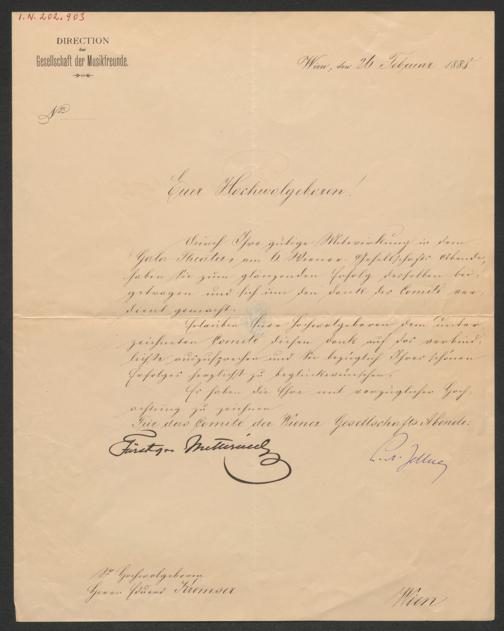 I. N. 202.903
DIRECTION
der
Gesellschaft der Musikfreunde.
Wien, den 26 Februar 1885
No
Euer Hochwolgeboren!
Durch Ihre gütige Mitwirkung in dem
Gala Theater am Wiener Gesellschafts Abende,
haben Sie zum glänzenden Erfolg desselben bei-
getragen und sich um den Dank des Comité ver
dient gemacht.
Erlauben Euer Hochwolgeboren dem unter
zeichneten Comité diesen Dank auf das verbind
lichste auszusprechen und Sie bezüglich Ihres schönen
Erfolges herzlichst zu beglückwünschen.
Es haben die Ehre mit vorzüglicher Hoch
achtung zu zeichnen
Für das Comité der Wiener Gesellschafts Abende:
Metternich
Sr Hochwolgeboren
Herrn Eduard Kremser
Wien